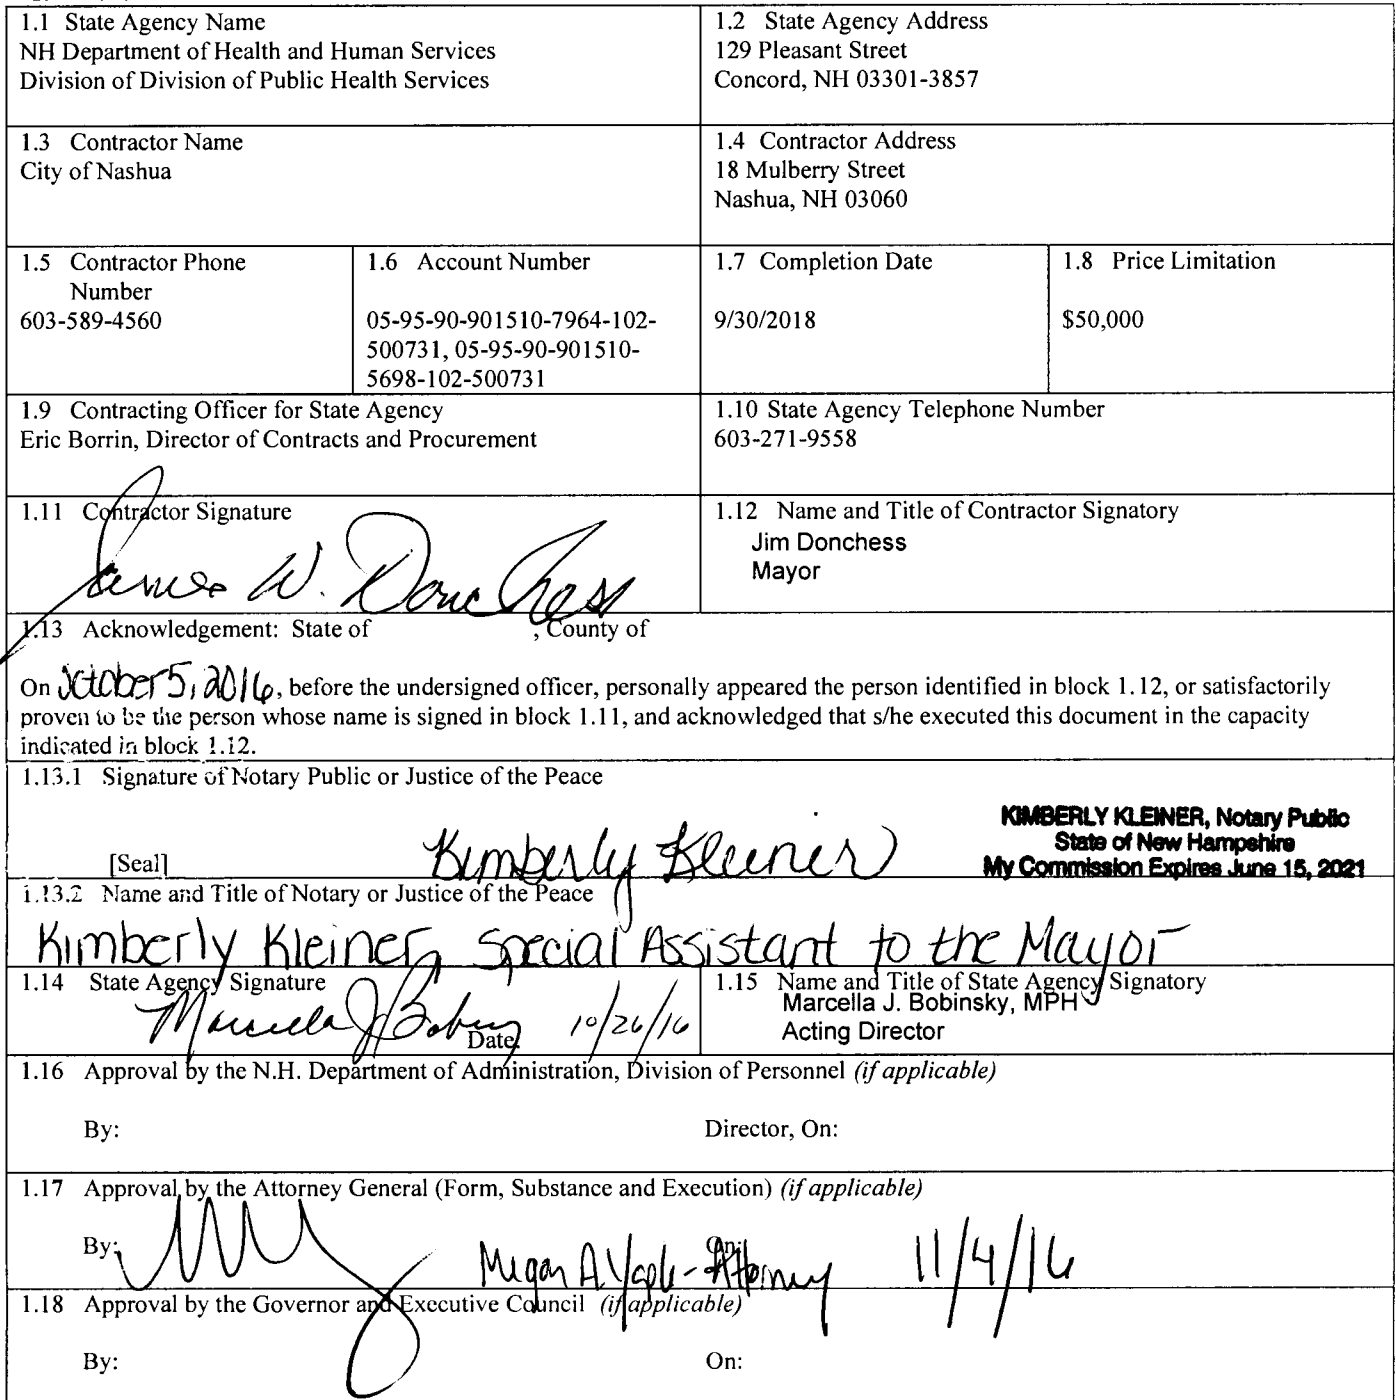 1.1 State Agency Name
NH Department of Health and Human Services
Division of Division of Public Health Services
1.2 State Agency Address
129 Pleasant Street
Concord, NH 03301-3857
1.3 Contractor Name
City of Nashua
1.4 Contractor Address
18 Mulberry Street
Nashua, NH 03060
1.5 Contractor Phone
Number
603-589-4560
1.6 Account Number
05-95-90-901510-7964-102-
500731, 05-95-90-901510-
5698-102-500731
1.7 Completion Date
9/30/2018
1.8 Price Limitation
$50,000
1.9 Contracting Officer for State Agency
Eric Borrin, Director of Contracts and Procurement
1.10 State Agency Telephone Number
603-271-9558
1.11 Contractor Signature
James W. Donchess
1.12 Name and Title of Contractor Signatory
Jim Donchess
Mayor
1.13 Acknowledgement: State of , County of
On October 5, 2016, before the undersigned officer, personally appeared the person identified in block 1.12, or satisfactorily
proven to be the person whose name is signed in block 1.11, and acknowledged that s/he executed this document in the capacity
indicated in block 1.12.
1.13.1 Signature of Notary Public or Justice of the Peace
KIMBERLY KLEINER, Notary Public
State of New Hampshire
My Commission Expires June 15, 2021
[Seal] Kimberly Kleiner
1.13.2 Name and Title of Notary or Justice of the Peace
Kimberly Kleiner, Special Assistant to the Mayor
1.14 State Agency Signature
Marcella J Bobinsky Date: 10/26/16
1.15 Name and Title of State Agency Signatory
Marcella J. Bobinsky, MPH
Acting Director
1.16 Approval by the N.H. Department of Administration, Division of Personnel (if applicable)
By: Director, On:
1.17 Approval by the Attorney General (Form, Substance and Execution) (if applicable)
By: Megan A. Yaple - Attorney On: 11/4/16
1.18 Approval by the Governor and Executive Council (if applicable)
By: On: